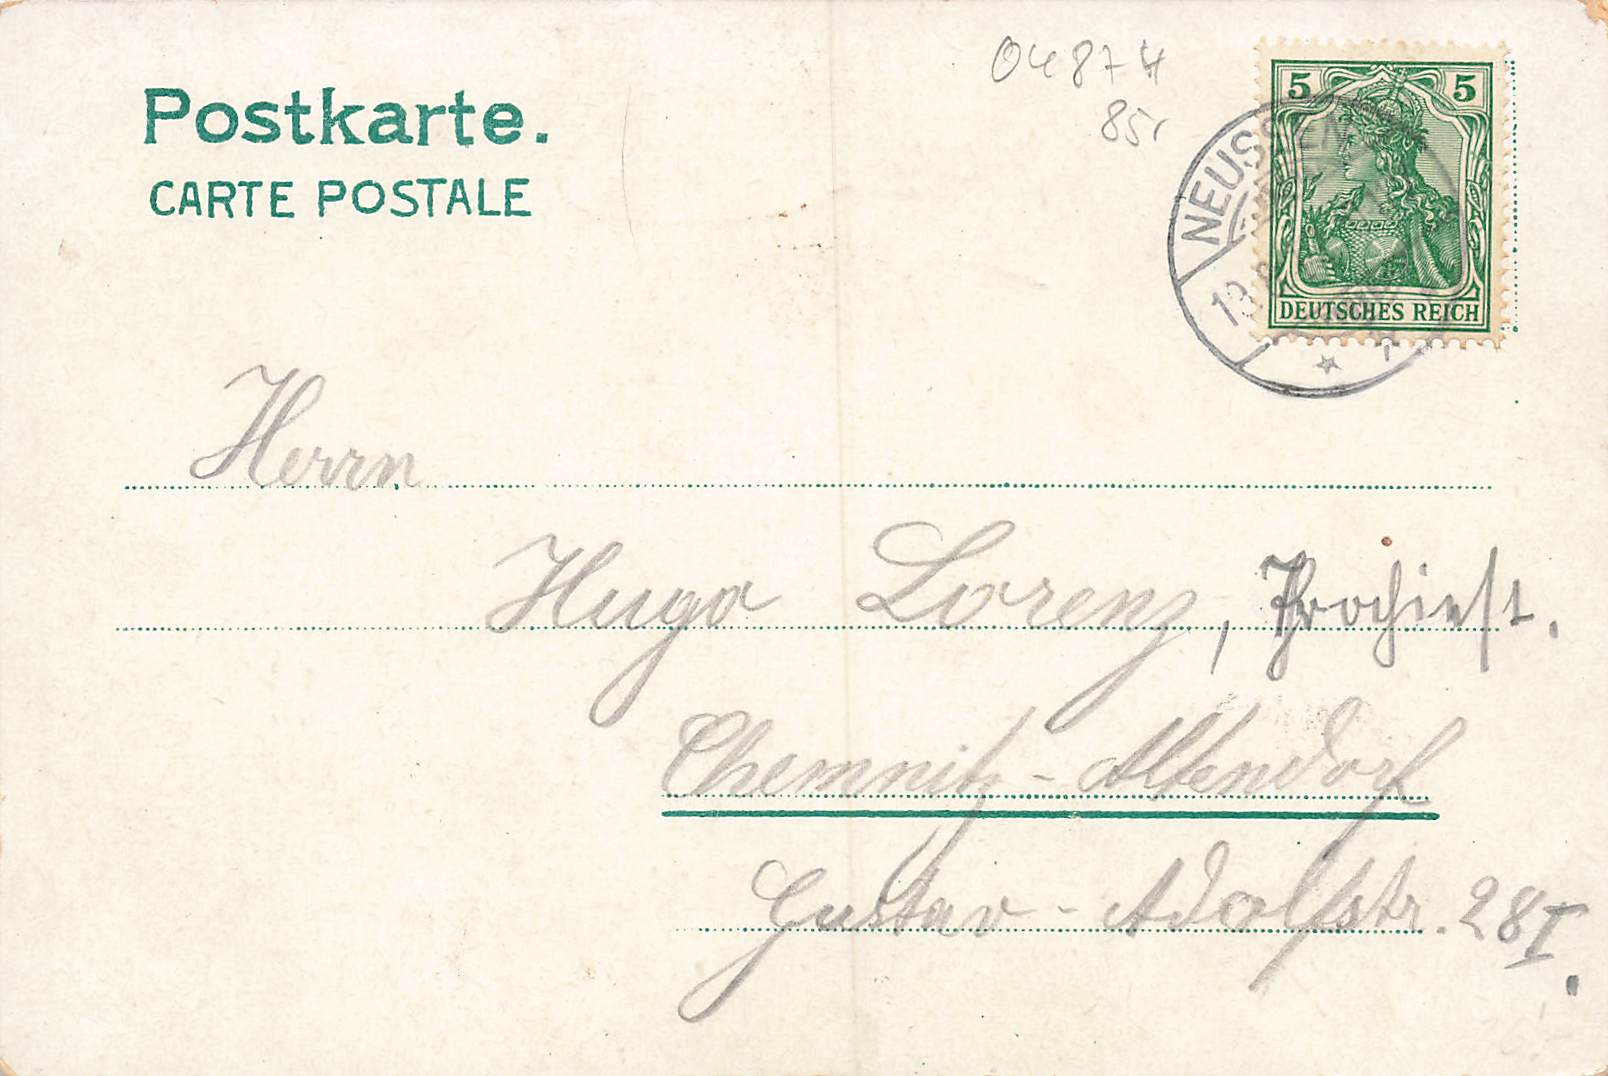 Postkarte.
CARTE POSTALE
04874
85r
5 5
NEUSS
DEUTSCHES REICH
Herrn
Hugo Lorenz,
Chemnitz-Altendorf
Gustav-Adolfstr. 28 I.